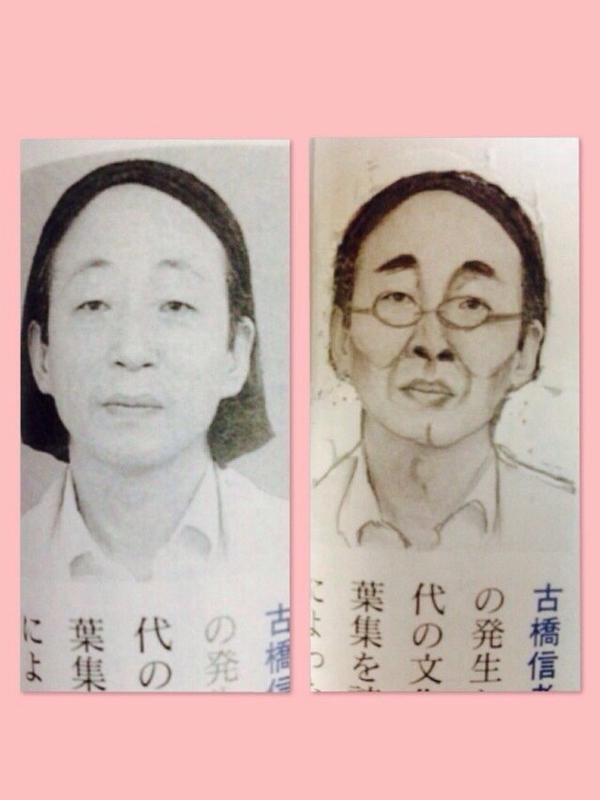 古橋信
の発
代の
葉集
によ
古橋信
の発生
代の文
葉集を
によっ